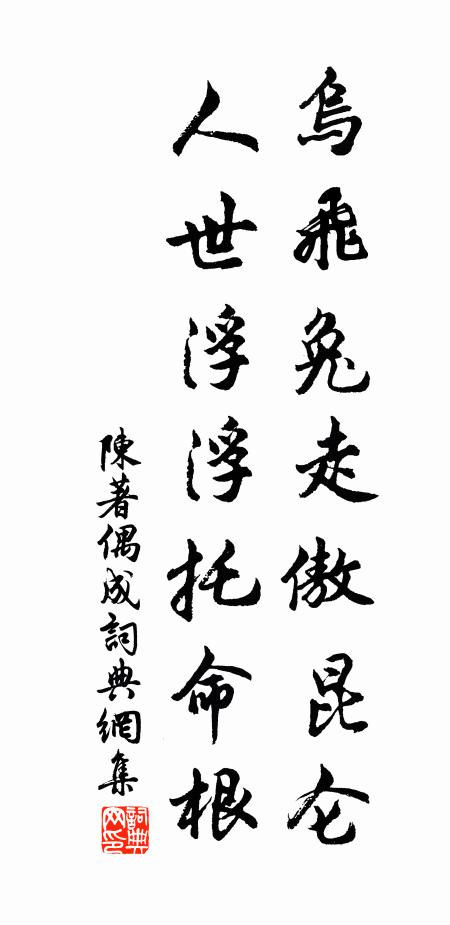 乌飛兔走傲昆仑
人世浮浮托命根
陳著偶成詞典網集
詞典网印